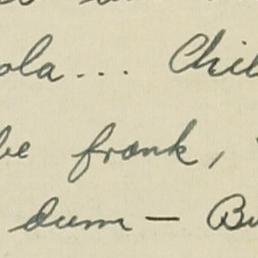 ola... Chil
be frank,
dum — Bu